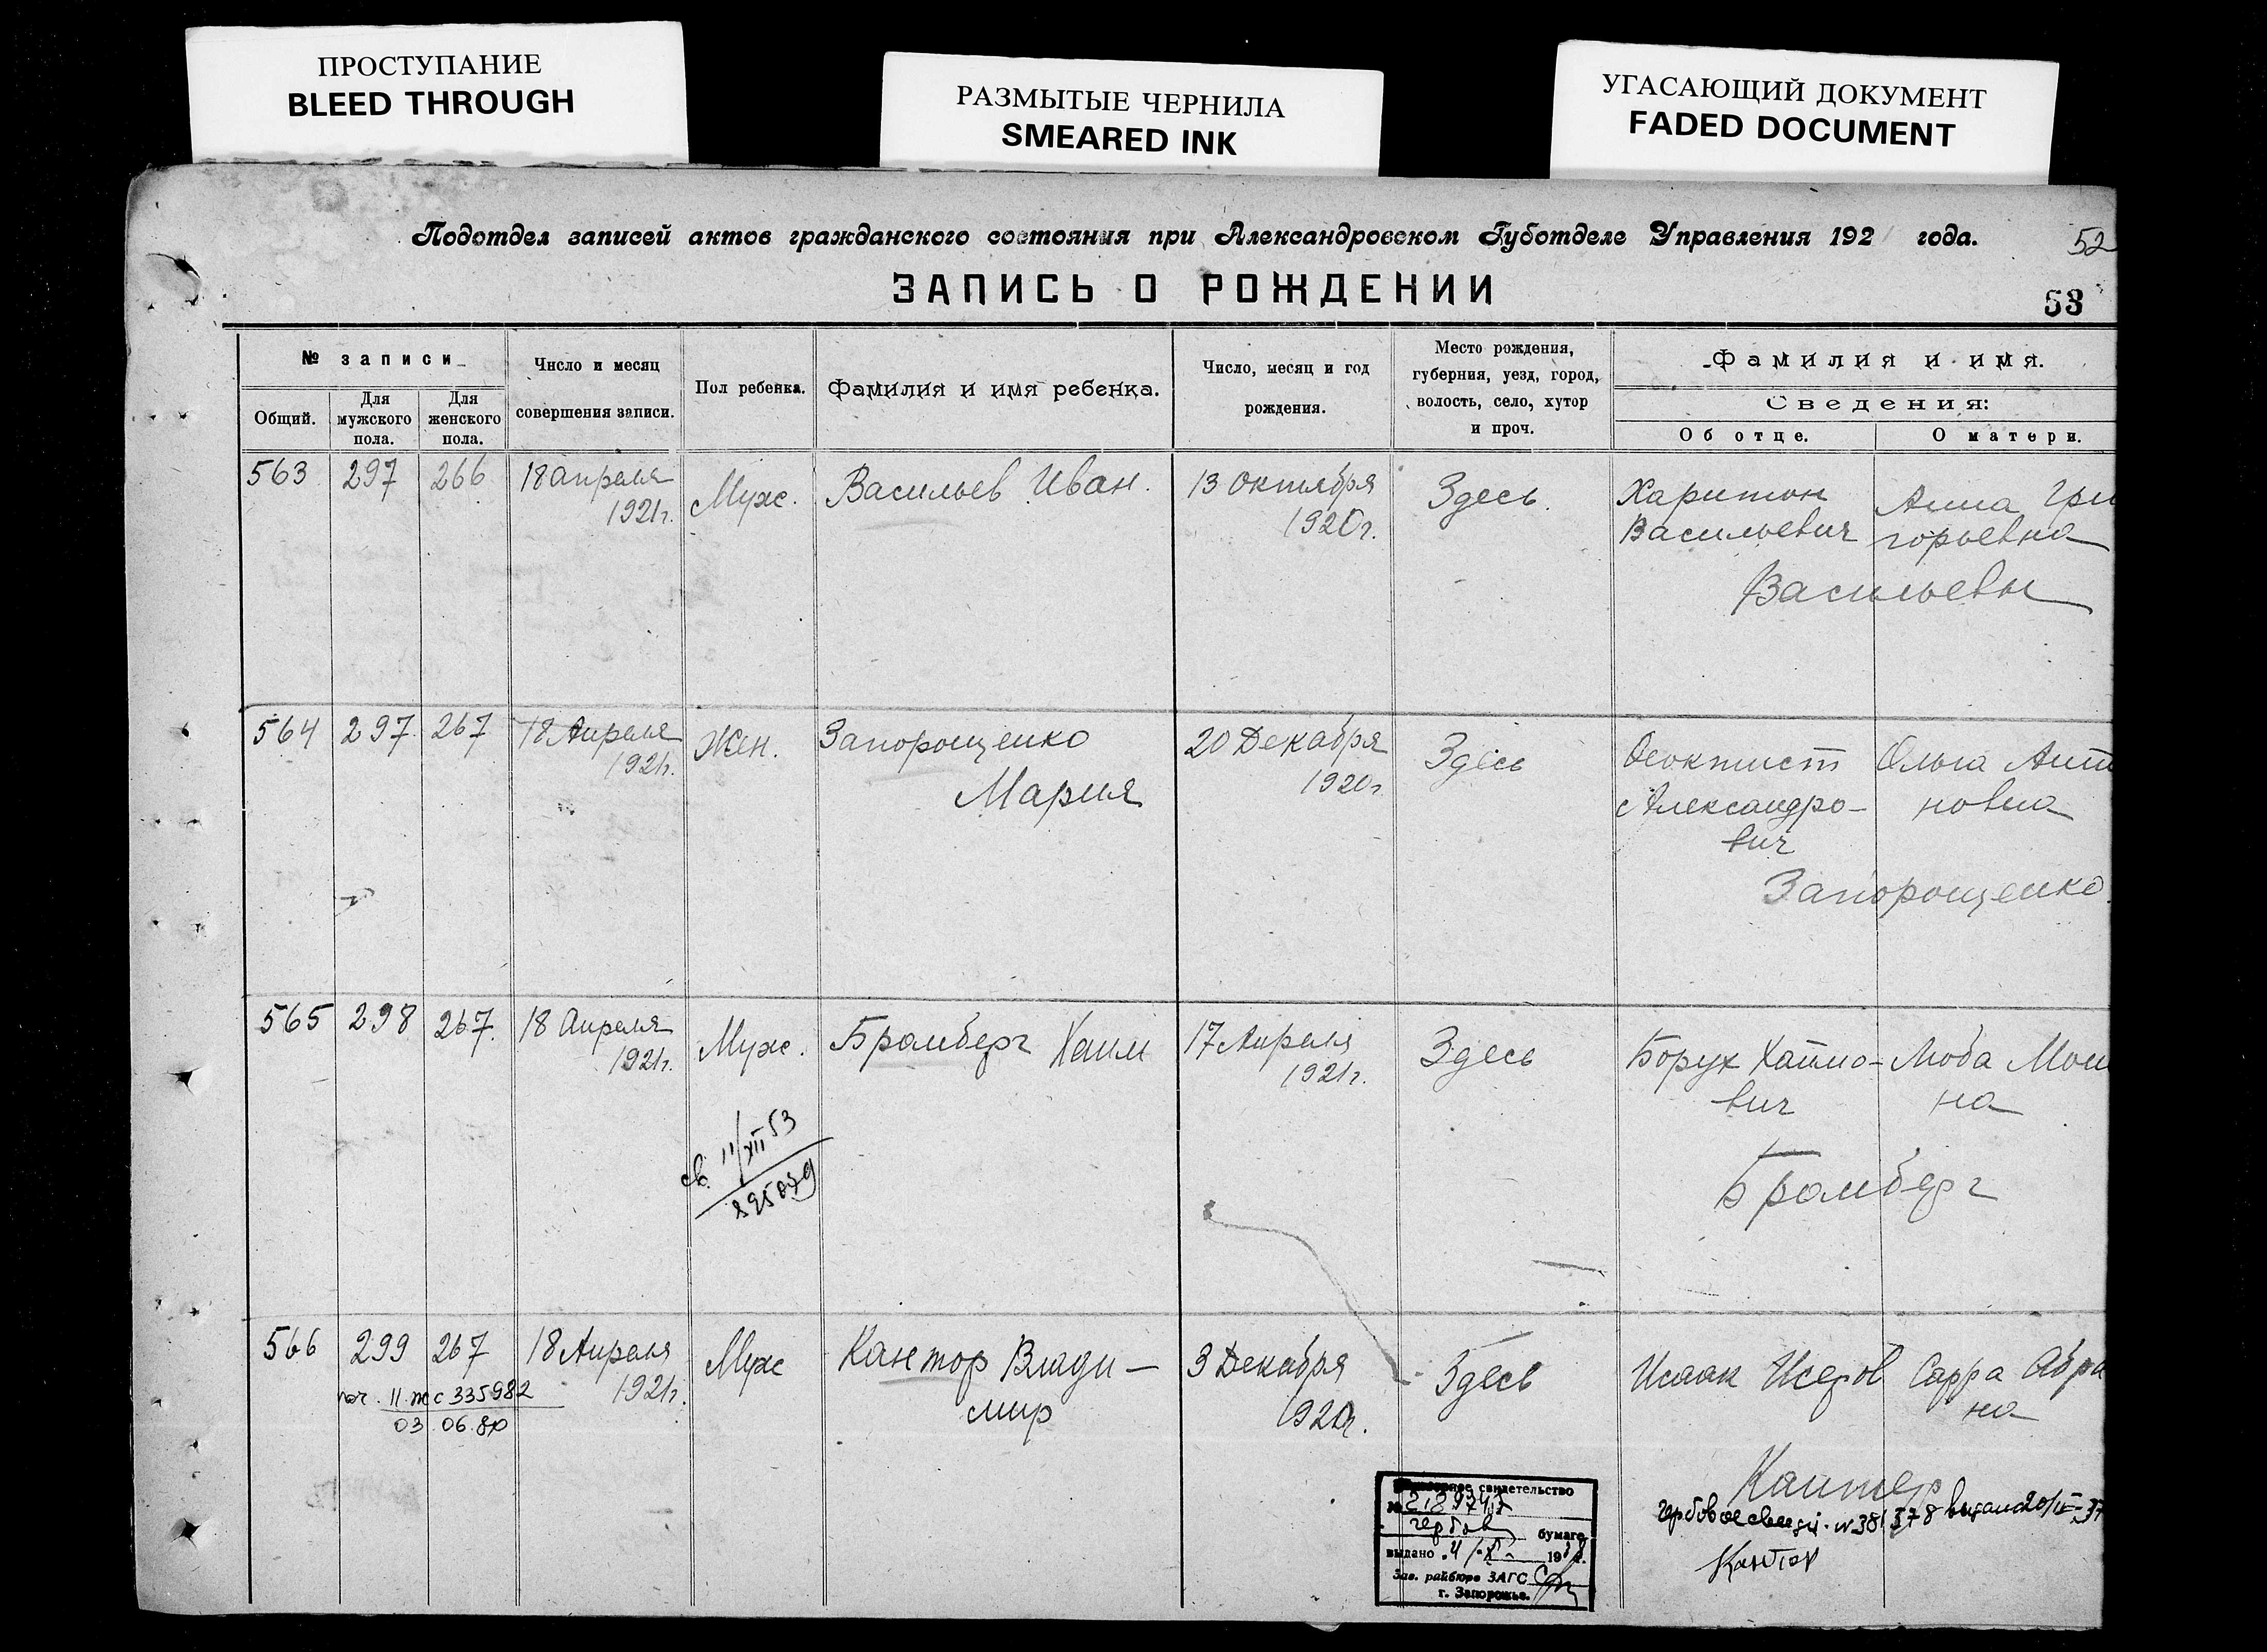 ПРОСТУПАНИЕ
BLEED THROUGH
РАЗМЫТЫЕ ЧЕРНИЛА
SMEARED INK
УГАСАЮЩИЙ ДОКУМЕНТ
FADED DOCUMENT
Подотдел записей актов гражданского состояния при Александровском Губотделе Управления 192 года.
52
ЗАПИСЬ О РОЖДЕНИИ
53
№ записи
Общий.
Для мужского пола.
Для женского пола.
Число и месяц совершения записи.
Пол ребенка.
Фамилия и имя ребенка.
Число, месяц и год рождения.
Место рождения, губерния, уезд, город, волость, село, хутор и проч.
Фамилия и имя.
Сведения:
Об отце.
О матери.
563 297 266 18 апреля Муж. Васильев Иван. 13 октября Здесь. Харитон Анна Гри
1921г. 1920г. Васильевич горьевна
Васильевы
564 297 267 18 Апреля Жен. Запорощенко 20 Декабря Здесь Феоктист Ольга Ант
1921г. Мария 1920г Александро- новна
вич
Запорощенко
565 298 267. 18 Апреля Муж. Бромберг Хаим 17 Апреля Здесь Борух Хаимо- Люба Мои
1921г. 1921г. вич на
Бромберг
св. 11/XII 53
566 299 267 18 Апреля Муж Кантор Влади- 3 Декабря Здесь Исаак Исеров Сарра Абра
1921г. мир 1920г. на
II ЖС 335982
03.06.80
Кантор
гербовое свид. № 381378 выдано
Кантор
свидетельство
№
гербов бумаге
выдано 4 19
Зав. райбюро ЗАГС
г. Запорожье.